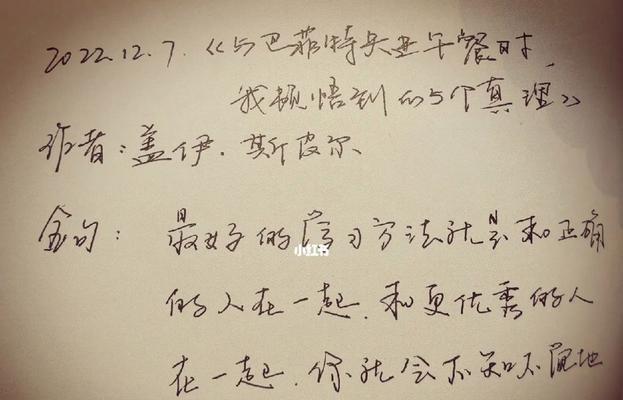 2022.12.7.《与巴菲特共进午餐时,
我顿悟到的5个真理》
作者:盖伊.斯皮尔
金句:最好的学习方法就是和正确
的人在一起.和更优秀的人
在一起.你就会不知不觉地
小红书